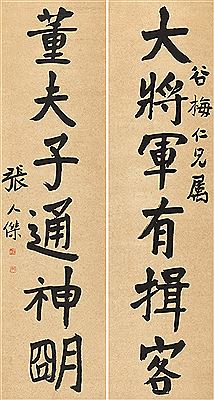 大將軍有揖客
谷梅仁兄属
董夫子通神明
張人傑